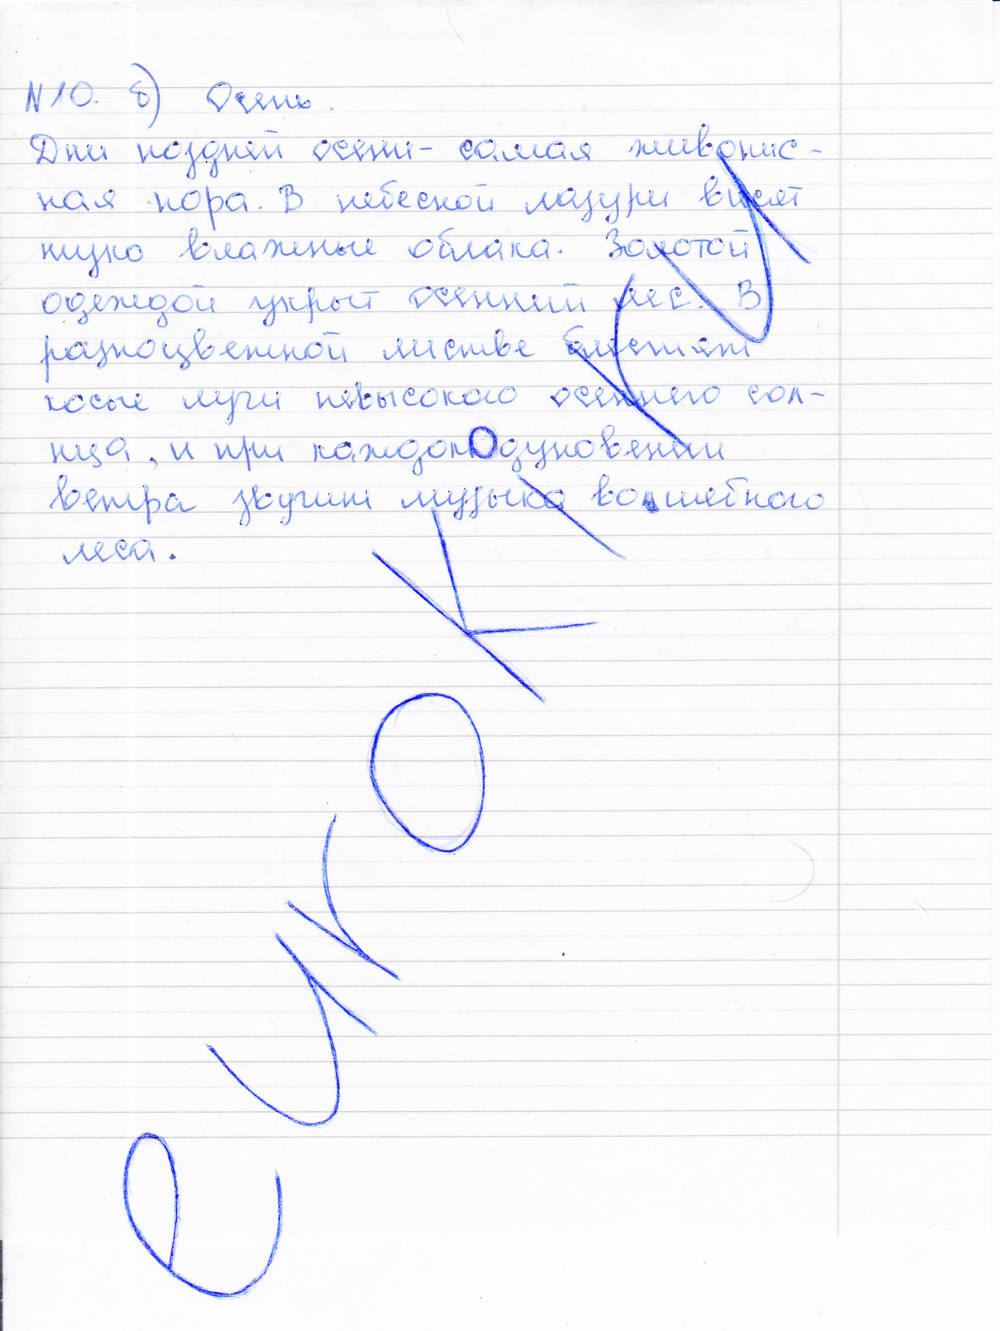 N10. б) Осень.
Дни поздней осени - самая живопис-
ная пора. В небесной лазури висят
низко влажные облака. Золотой
одеждой укрыт осенний лес. В
разноцветной листве блестят
косые лучи невысокого осеннего сол-
нца, и при каждом дуновении
ветра звучит музыка волшебного
леса.
eurokI.ru